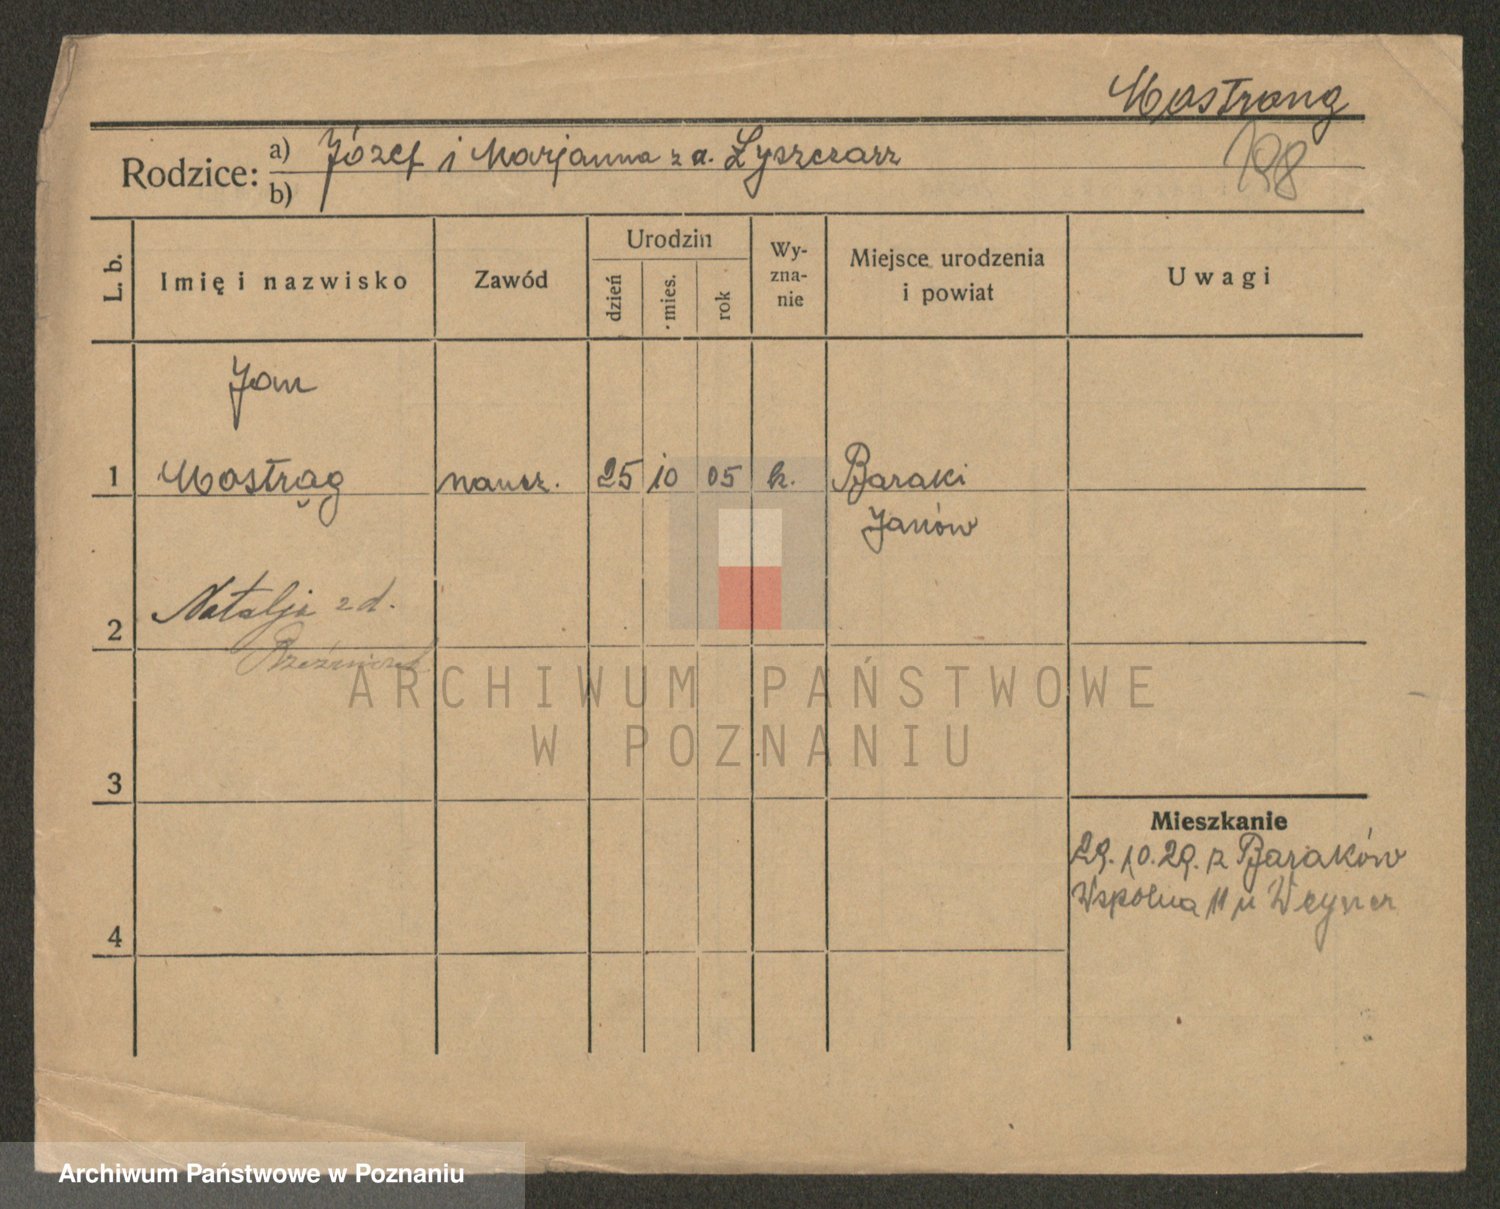 Mostrang
198
Rodzice: a) Józef i Marjanna z d. Łyszczarz
b)
L. b.
Imię i nazwisko
Zawód
Urodzin
dzień
mies.
rok
Wy-
zna-
nie
Miejsce urodzenia
i powiat
Uwagi
Jan
1 Mostrąg naucz. 25 10 05 k. Baraki
Janów
2 Natalja z d.
3
Mieszkanie
29.10.29. z Baraków
Wspólna 11 u Weyner
4
ARCHIWUM PAŃSTWOWE
W POZNANIU
Archiwum Państwowe w Poznaniu